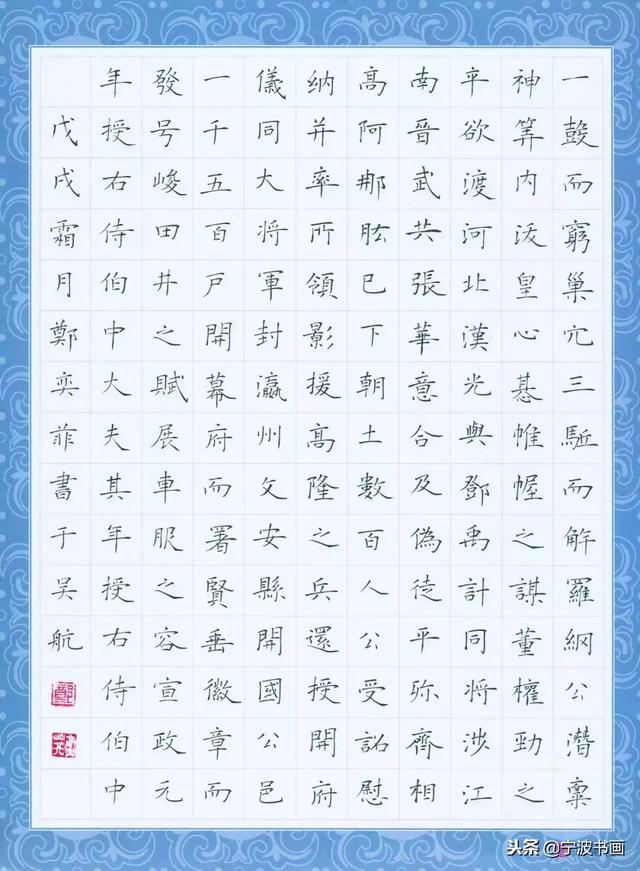 一鼓而窮巢穴三駈而解羅網公潛稟
神筭内沃皇心惎帷幄之謀董權勁之
平欲渡河北漢光與鄧禹計同將涉江
南晉武共張華意合及偽徒平殄齊相
高阿那肱已下朝士數百人公受詔慰
納并率所領影援高隆之兵還授開府
儀同大將軍封瀛州文安縣開國公邑
一千五百戶開幕府而署賢垂徽章而
發号峻田井之賦展車服之容宣政元
年授右侍伯中大夫其年授右侍伯中
戊戌霜月鄭奕菲書于吴航
头条@宁波书画